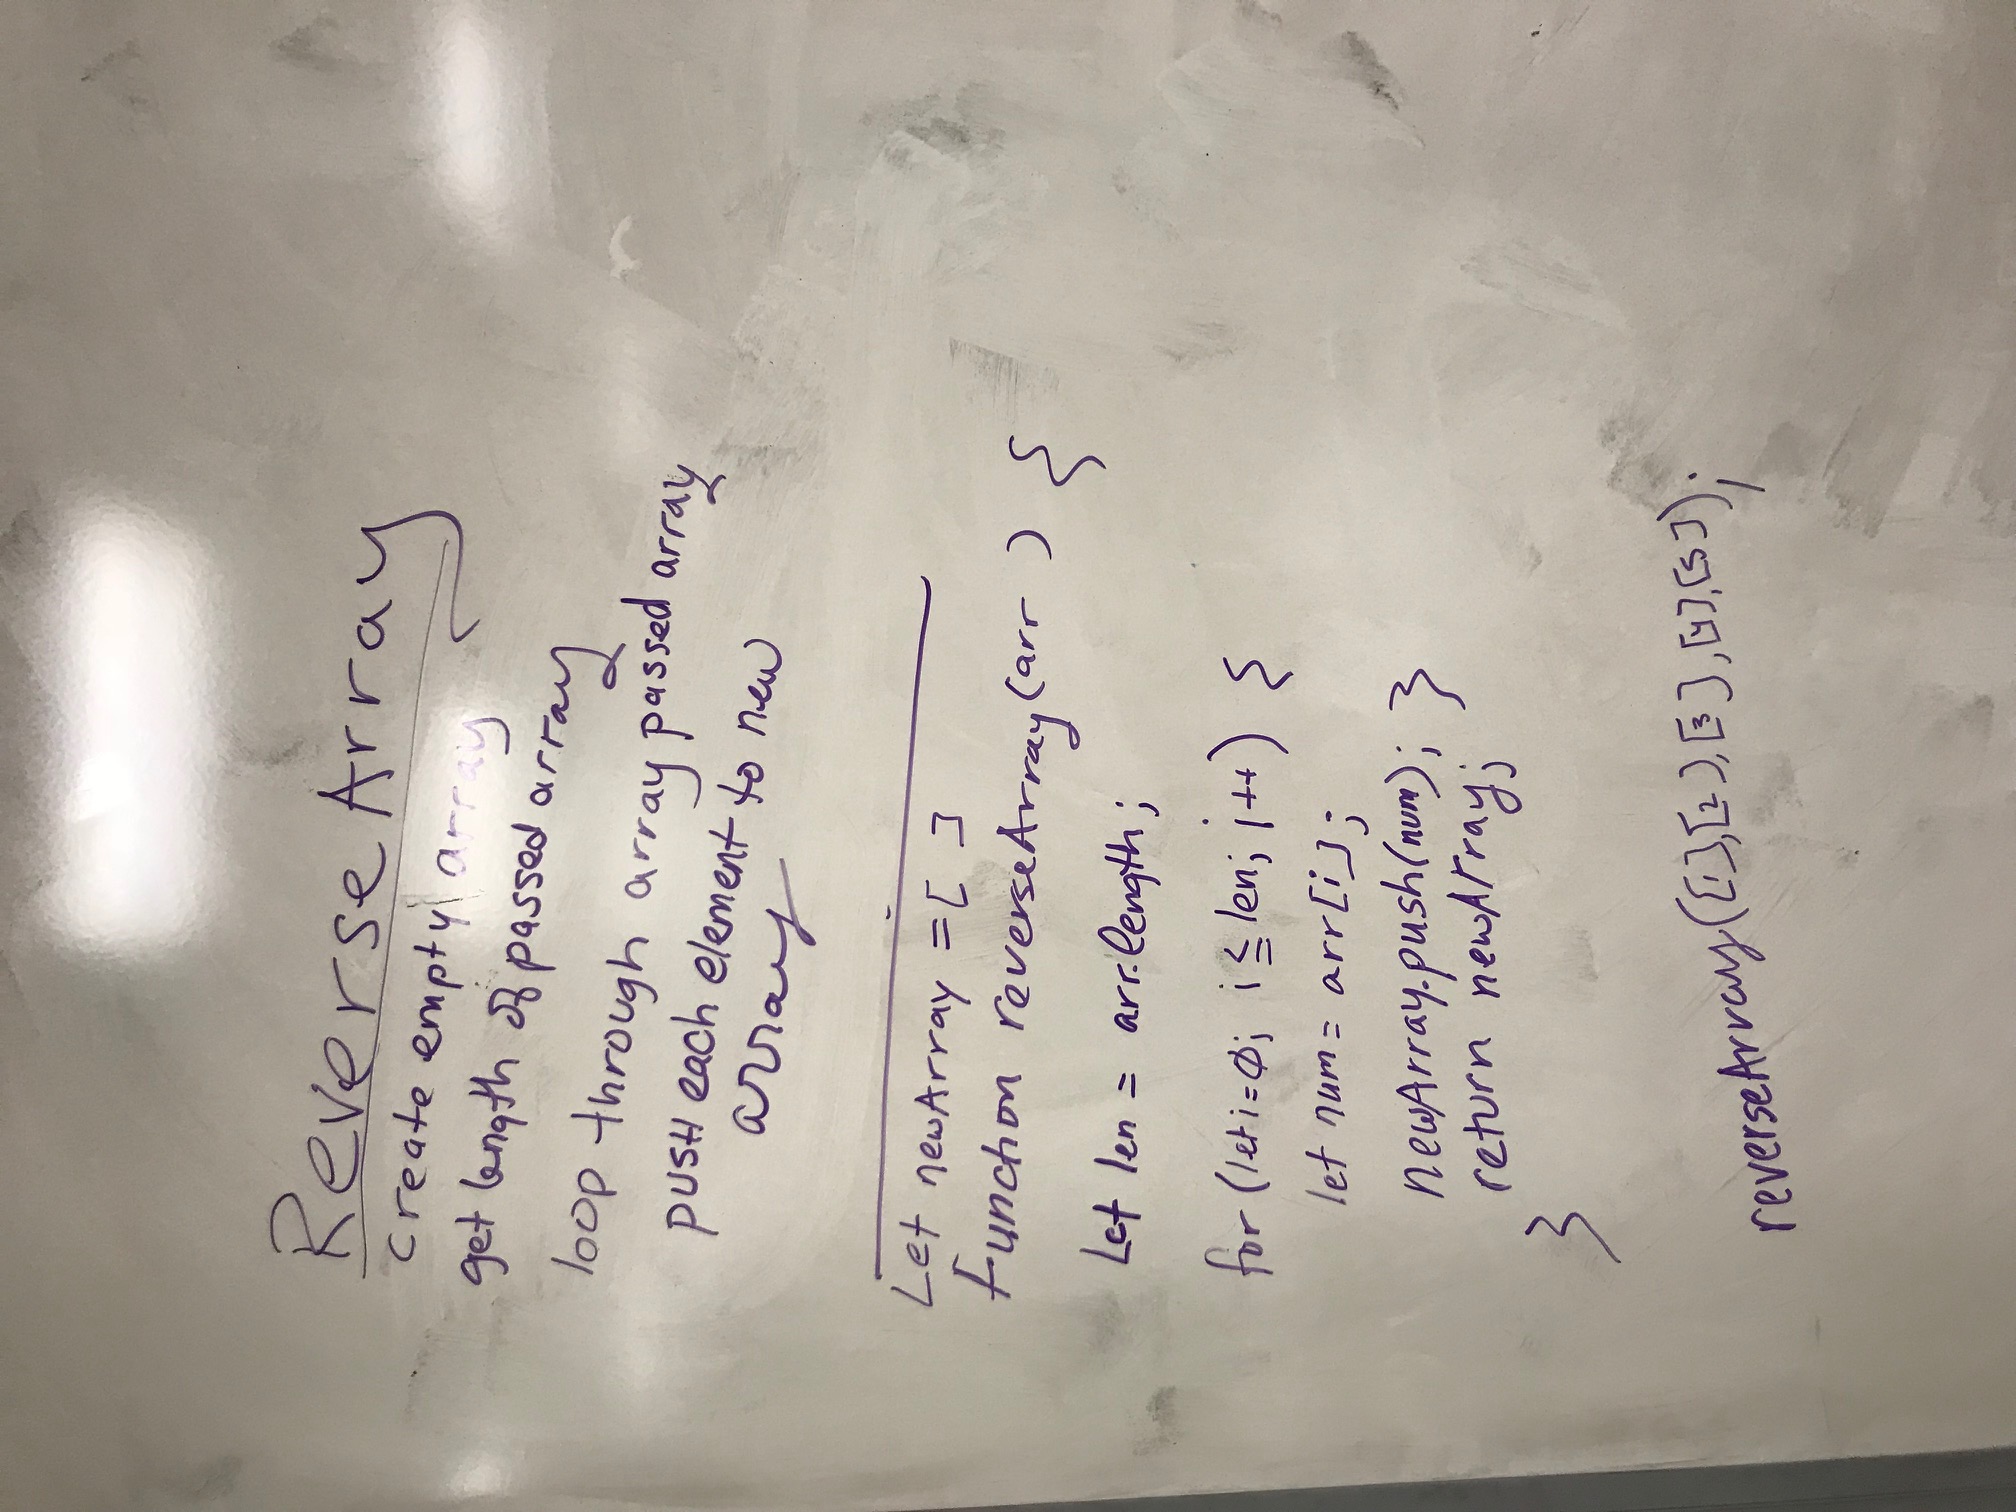 Reverse Array
create empty array
get length of passed array
loop through array passed array
push each element to new
array
Let newArray = [ ]
Function reverseArray(arr ) {
Let len = arr.length;
for (let i=0; i ≤ len; i++) {
let num = arr[i];
newArray.push(num); }
return newArray;
}
reverseArray([1],[2],[3],[4],[5]);